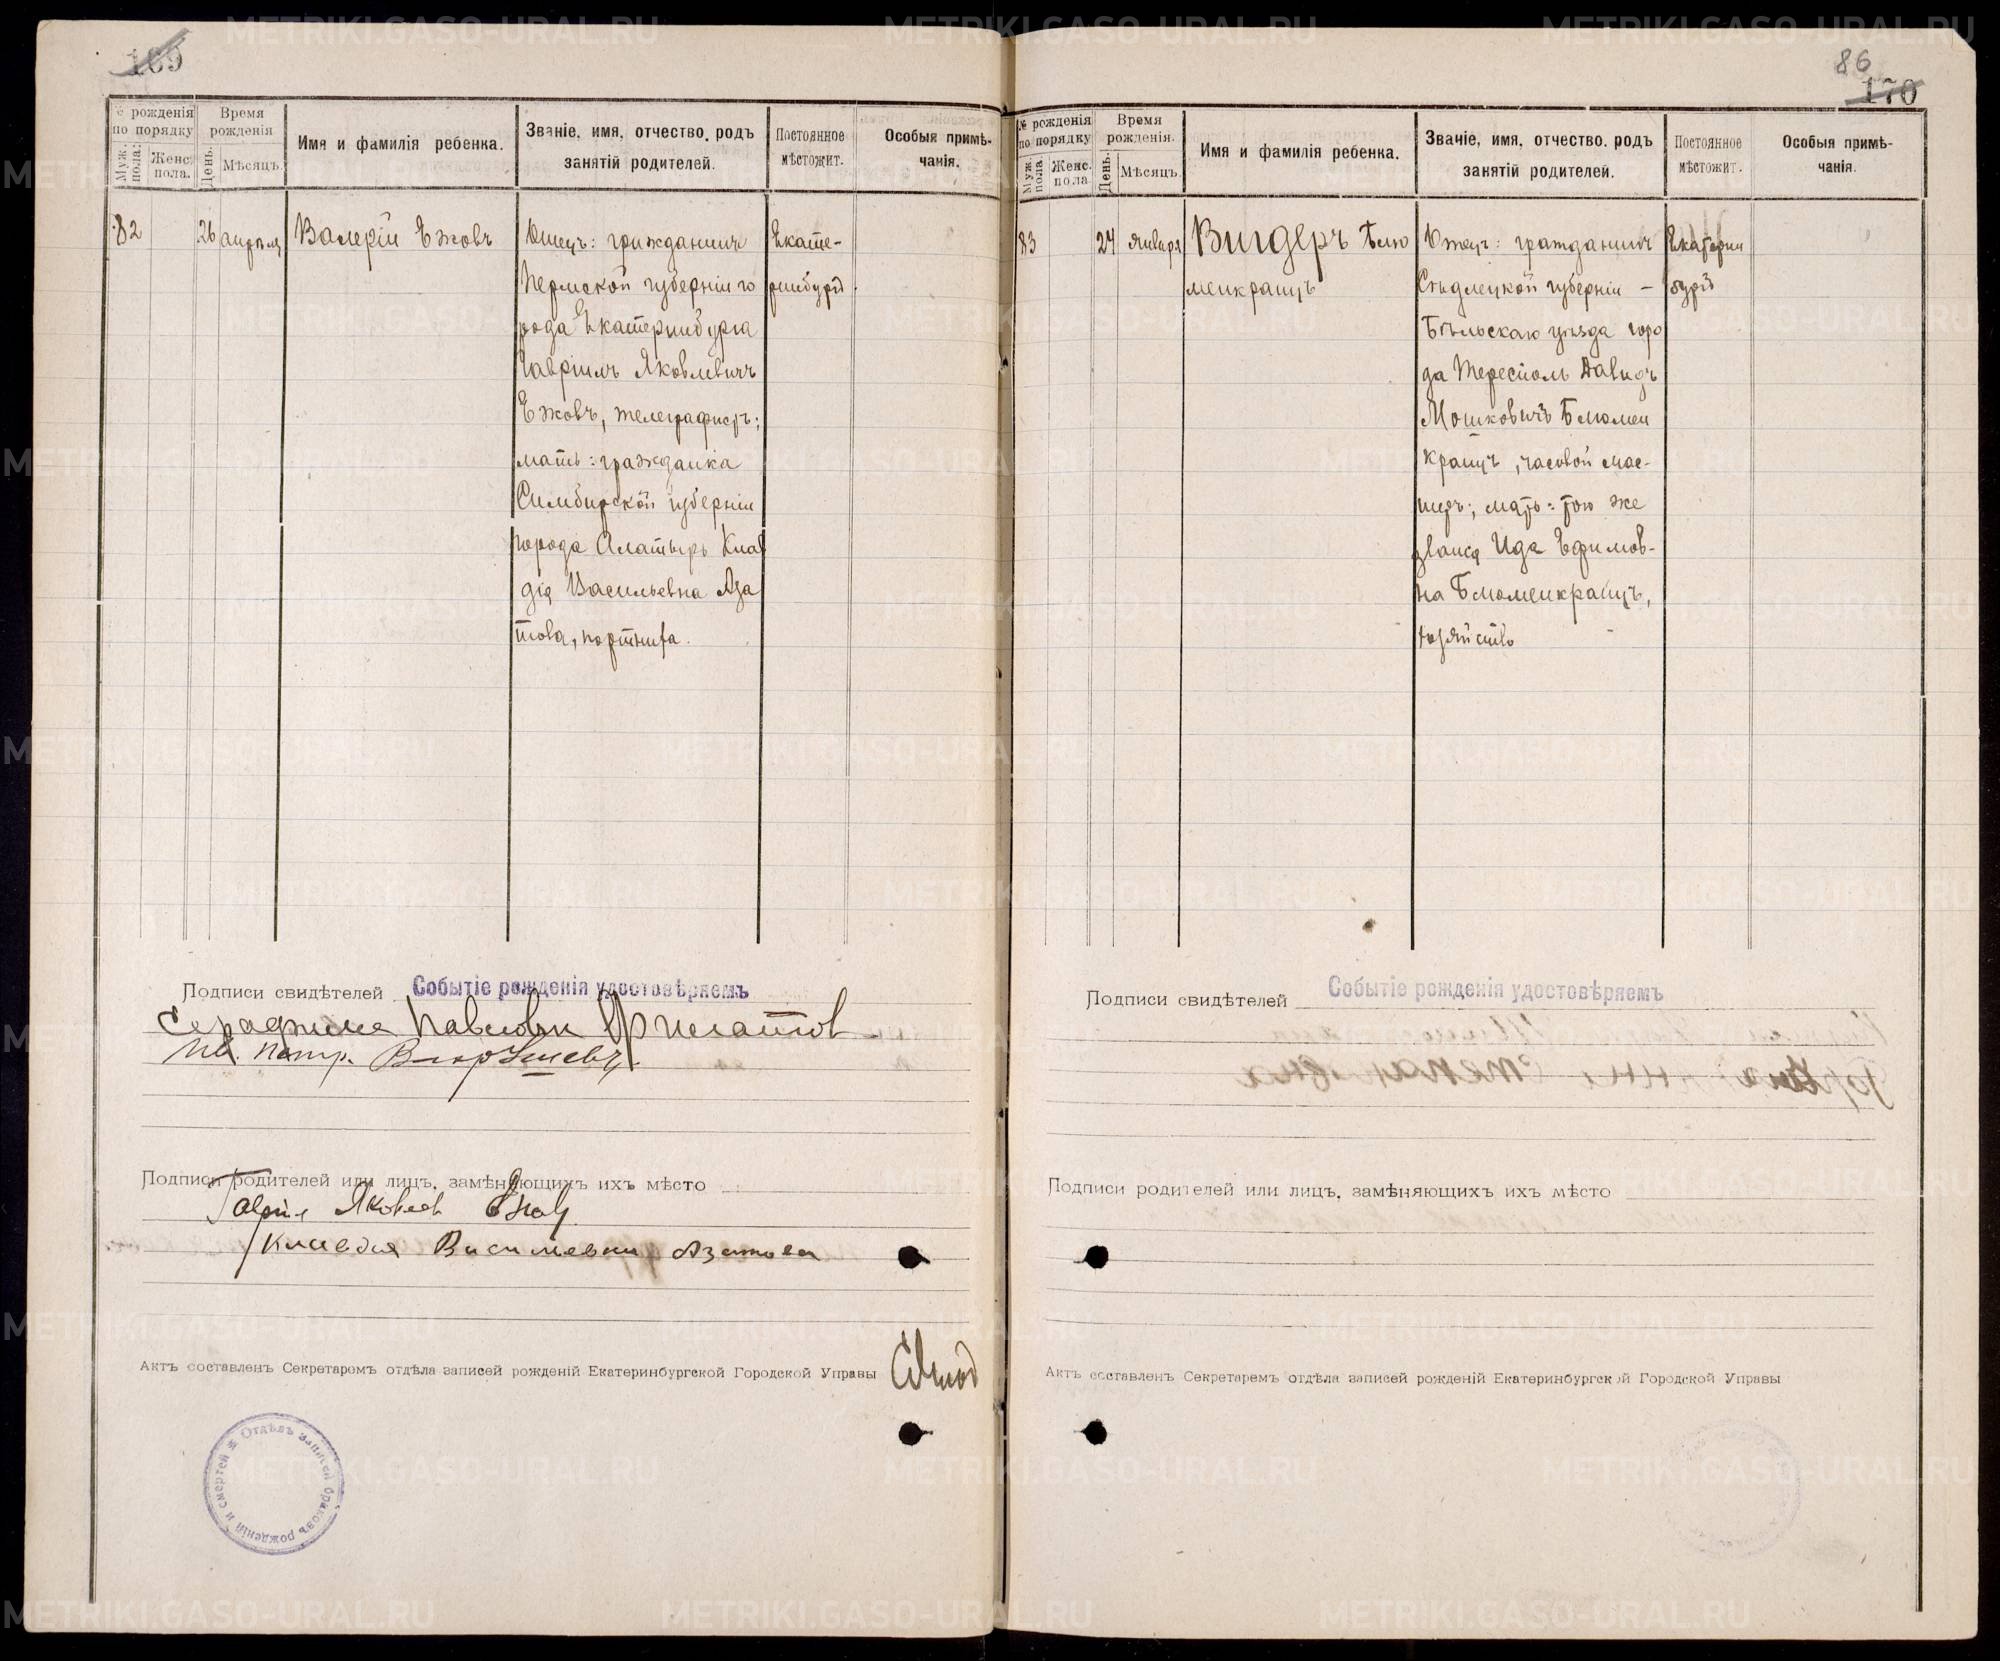 169
№ рожденія по порядку
Муж. пола.
Женс. пола.
Время рожденія
День.
Мѣсяцъ.
Имя и фамилія ребенка.
Званіе, имя, отчество, родъ занятій родителей.
Постоянное мѣстожит.
Особыя примѣчанія.
82
26 апрѣля
Валерій Ежовъ
Отецъ: гражданинъ
Пермской губерніи го
рода Екатеринбурга
Гавріилъ Яковлевичъ
Ежовъ, телеграфистъ;
мать: гражданка
Симбирской губерніи
города Алатырь Клав
дія Васильевна Аза
това, портниха.
Екате-
ринбургъ
Подписи свидѣтелей
Событіе рожденія удостовѣряемъ
Серафима Павловна
Подписи родителей или лицъ, замѣняющихъ ихъ мѣсто
Гавріил Яковлев Ежов
Клавдия Васильевна Азатова
Актъ составленъ Секретаремъ отдѣла записей рожденій Екатеринбургской Городской Управы
Отдѣлъ записей браковъ рожденій и смертей
86
170
№ рожденія по порядку
Муж. пола
Женс. пола
Время рожденія.
День.
Мѣсяцъ.
Имя и фамилія ребенка.
Званіе, имя, отчество, родъ занятій родителей.
Постоянное мѣстожит.
Особыя примѣчанія.
83
24 января
Вигдеръ Блю
менкранцъ
Отецъ: гражданинъ
Сѣдлецкой губерніи –
Бѣльскаго уѣзда горо
да Тересполь Давидъ
Мошковичъ Блюмен
кранцъ, часовой мас-
теръ; мать: того же
званія Ида Ефимов-
на Блюменкранцъ,
хозяйство
Екатерин
бургъ
Подписи свидѣтелей
Событіе рожденія удостовѣряемъ
Подписи родителей или лицъ, замѣняющихъ ихъ мѣсто
Актъ составленъ Секретаремъ отдѣла записей рожденій Екатеринбургской Городской Управы
METRIKI.GASO-URAL.RU